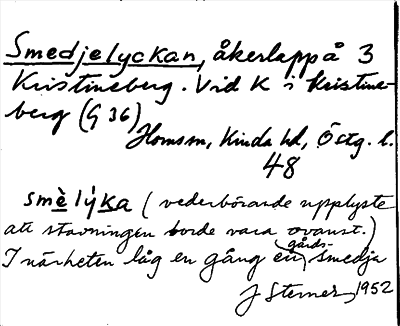 Smedjelyckan, åkerlapp å 3
Kristineberg. Vid K i Kristine-
berg (G 36)
Homsm, Kinda hd, Östg. l.
48
smè lỳka (vederbörande upplyste
att stavningen borde vara ovanst.)
I närheten låg en gång en gårds-smedja
J Sterner 1952